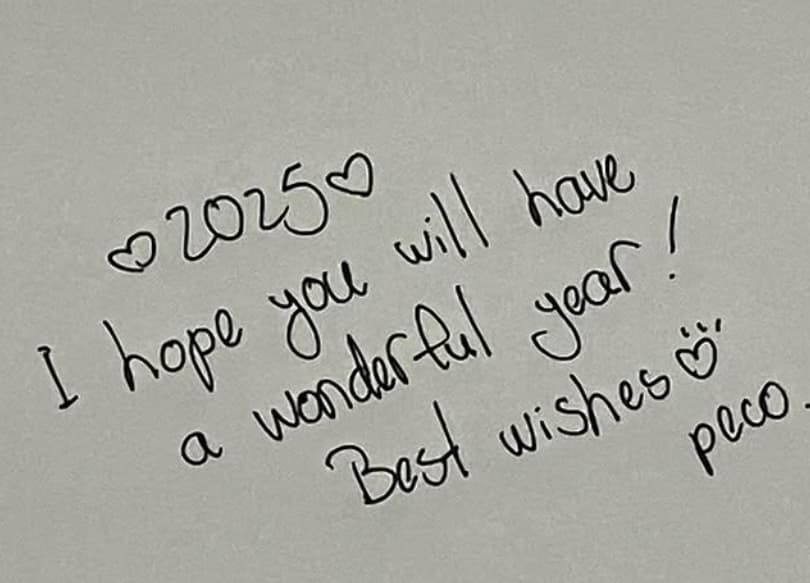 ♡2025♡
I hope you will have
a wonderful year!
Best wishes♡
peco.